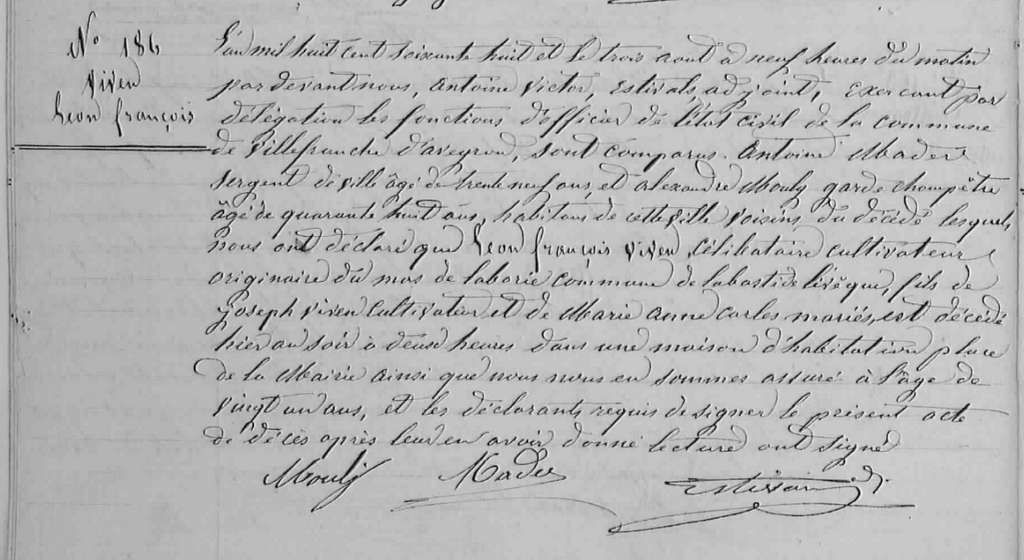 N° 186
Viven
Leon françois
L'an mil huit cent soixante huit et le trois aout à neuf heures du matin
par devant nous, Antoine Victor Estival adjoint, Exercant par
délégation les fonctions d'officier de l'état civil de la commune
de Villefranche d'aveyron, sont comparus Antoine Mader
sergent de ville âgé de trente neuf ans, et alexandre Mouly garde champêtre
âgé de quarante huit ans, habitans de cette ville voisins du décédé lesquels
nous ont déclaré que Leon françois Viven, Célibataire cultivateur
originaire du mas de laborie commune de labastide l'évêque, fils de
Joseph Viven Cultivateur et de Marie anne Carles mariés, est décédé
hier au soir à deux heures dans une maison d'habitation place
de la Mairie ainsi que nous nous en sommes assuré à l'âge de
vingt un ans, et les déclarants requis de signer le présent acte
de décès après leur en avoir donné lecture ont signé
Mouly Mader